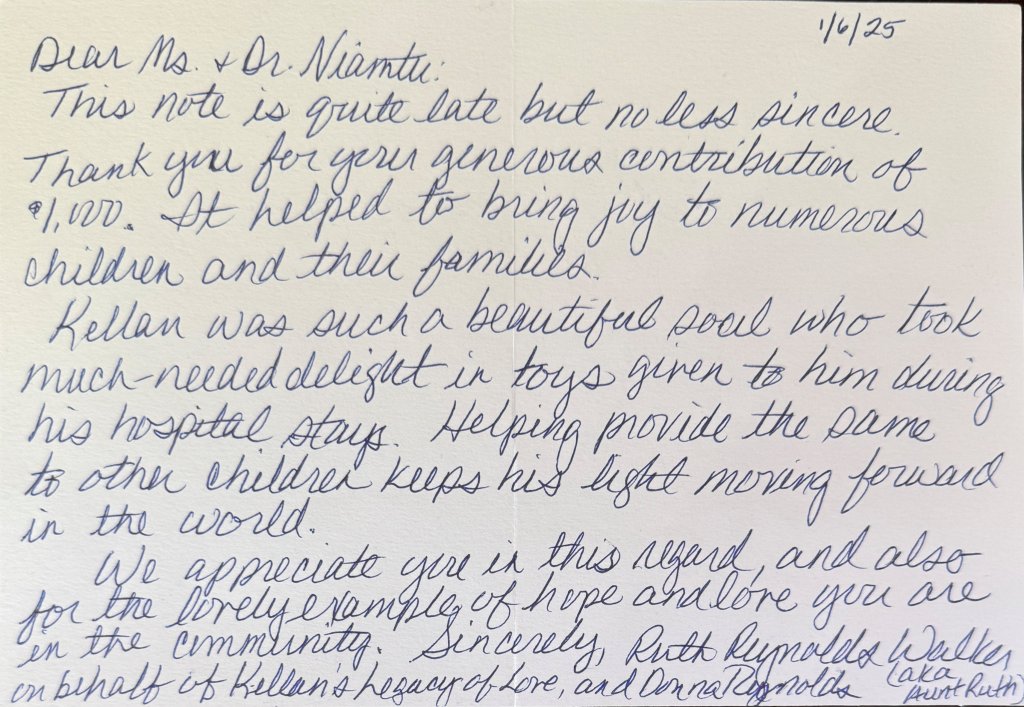 1/6/25
Dear Ms. & Dr. Niamtu:
This note is quite late but no less sincere.
Thank you for your generous contribution of
$1,000. It helped to bring joy to numerous
children and their families.
Kellan was such a beautiful soul who took
much-needed delight in toys given to him during
his hospital stays. Helping provide the same
to other children keeps his light moving forward
in the world.
We appreciate you in this regard, and also
for the lovely example of hope and love you are
in the community. Sincerely, Ruth Reynolds Walker
(aka
Aunt Ruth)
on behalf of Kellan's Legacy of Love, and Donna Reynolds